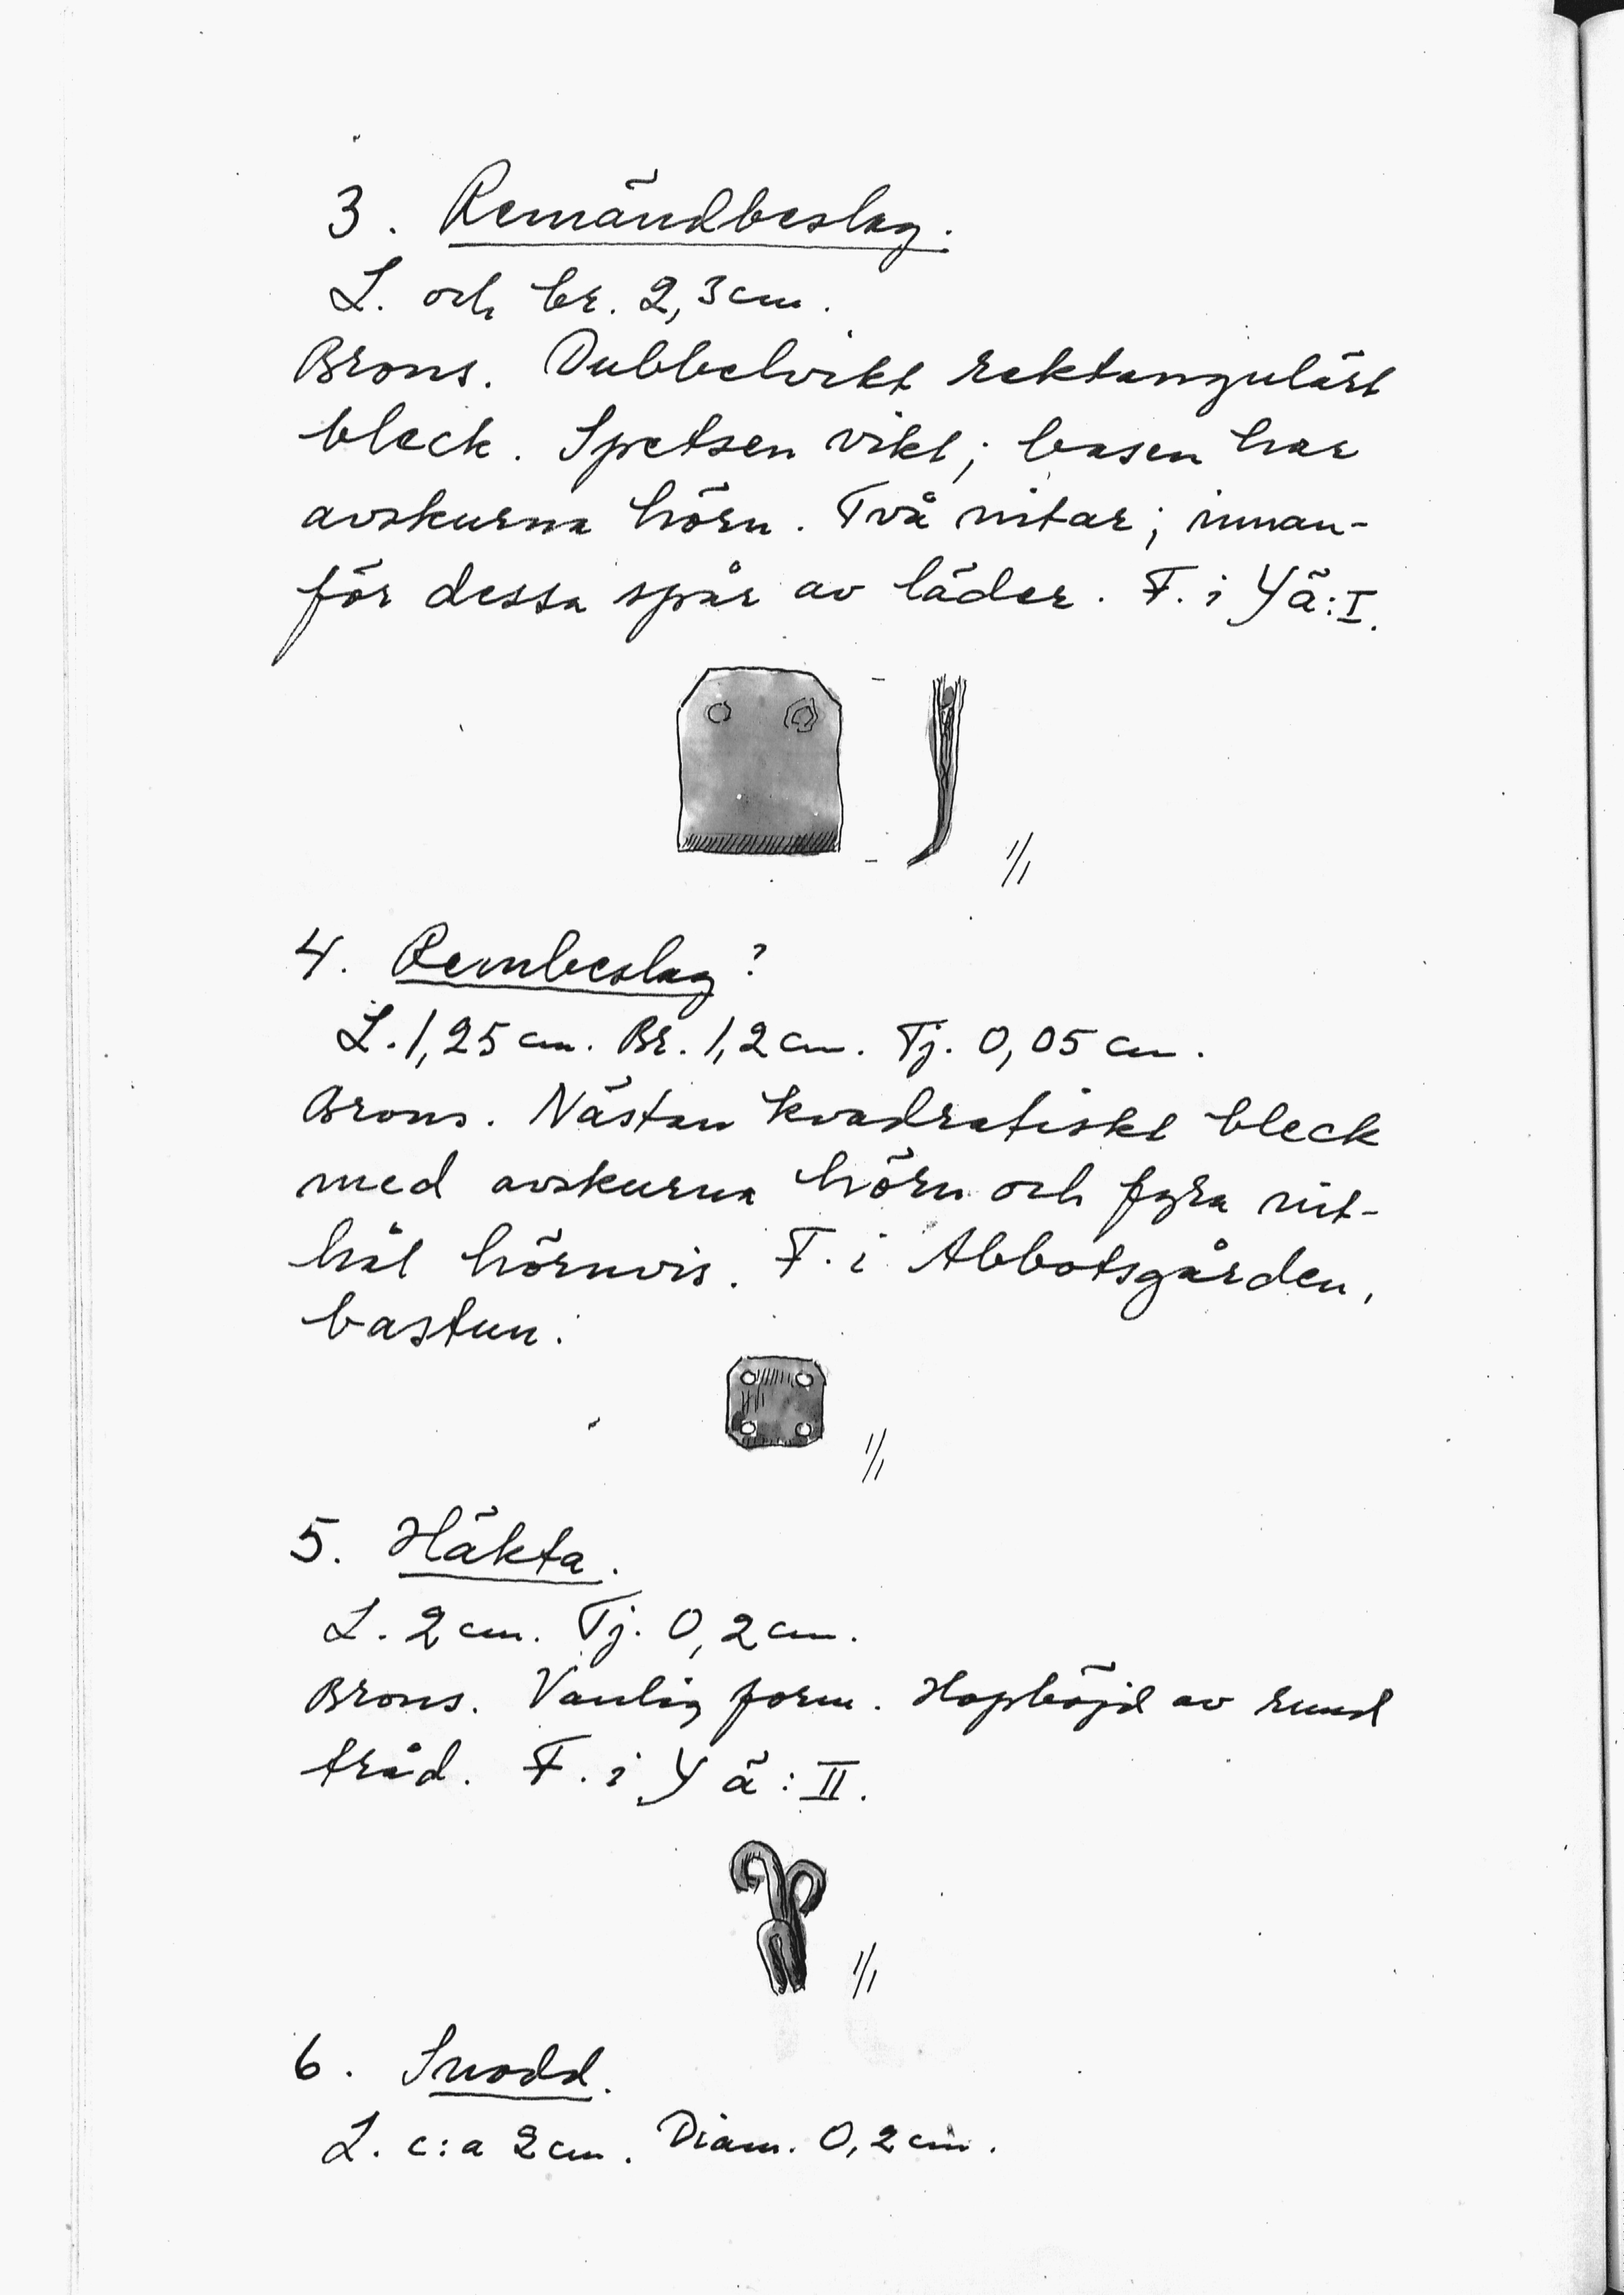 3. Remändbeslag.
L. och br. 2,3 cm.
Brons. Dubbelvikt rektangulärt
bleck. Spetsen vikt; basen har
avskurna hörn. Två nitar; innan-
för dessa spår av läder. F. i Yä:I.
1/1
4. Rembeslag?
L. 1,25 cm. Br. 1,2 cm. Tj. 0,05 cm.
Brons. Nästan kvadratiskt bleck
med avskurna hörn och fyra nit-
hål hörnvis. F. i Abbotsgården,
bastun.
1/1
5. Häkta.
L. 2 cm. Tj. 0,2 cm.
Brons. Vanlig form. Hopböjd av rund
tråd. F. i Yä:II.
1/1
6. Snodd.
L. c:a 2 cm. Diam. 0,2 cm.